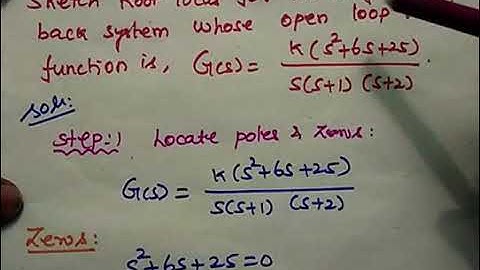 Sketch Root locus
back system whose open loop
function is, G(s) = K(s²+6s+25) / s(s+1) (s+2) .
soln:
step:1 Locate poles & zeros:
G(s) = K(s²+6s+25) / s(s+1) (s+2)
Zeros:
s²+6s+25=0